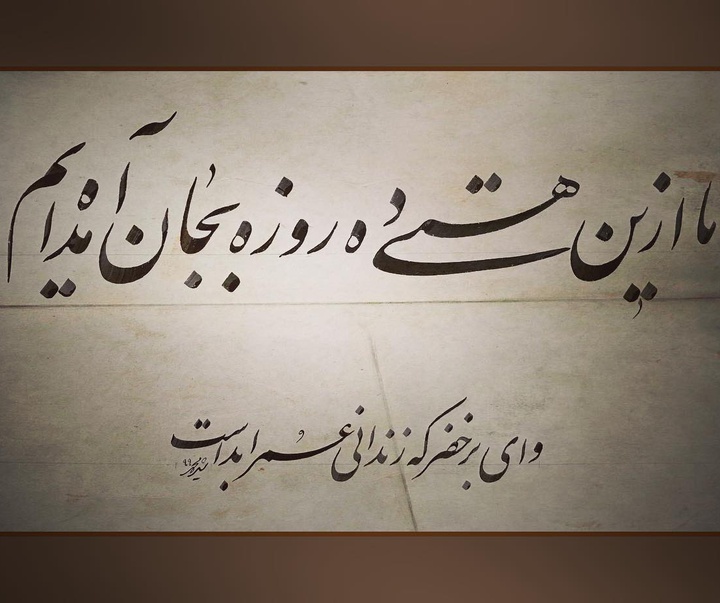 ما ازین هستی ده روزه بجان آمده‌ایم
وای بر خضر که زندانی عمر ابد است